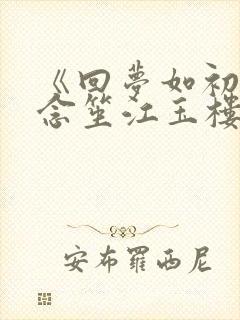 《回夢如初
念笙江玉樓
安布羅西尼